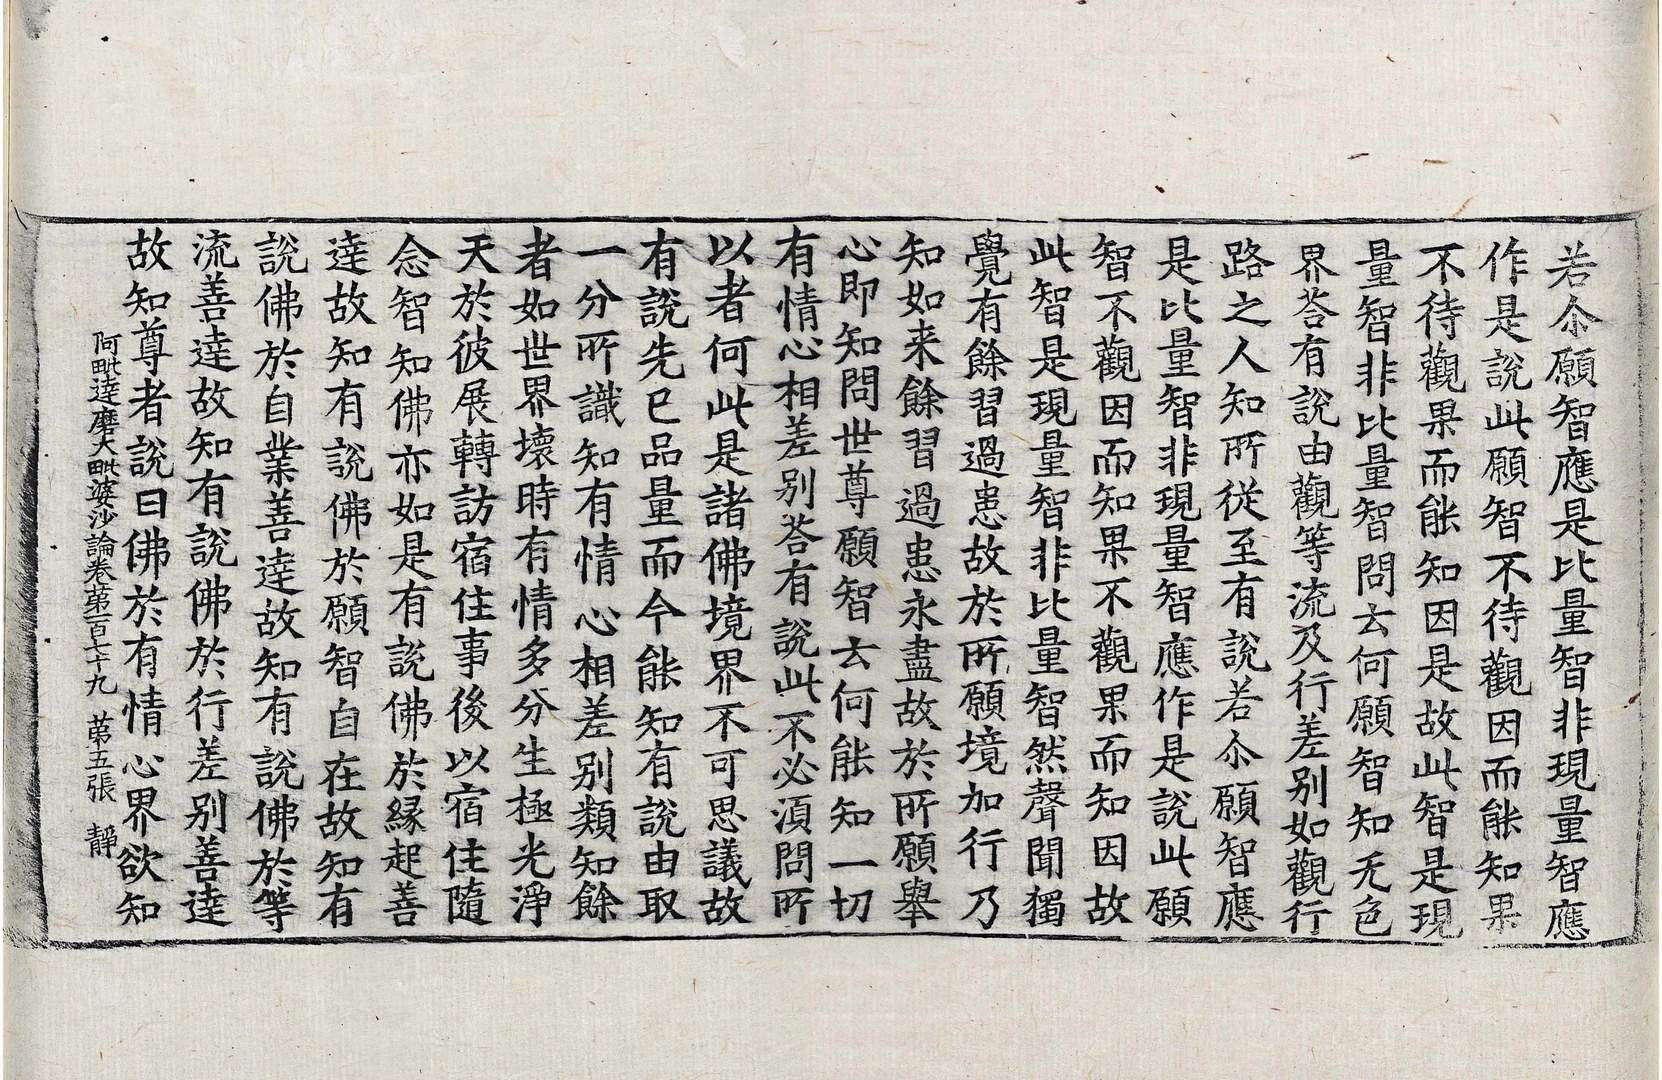 若尒願智應是比量智非現量智應
作是說此願智不待觀因而能知果
不待觀果而能知因是故此智是現
量智非比量智問去何願智知无色
界荅有說由觀等流及行差别如觀行
路之人知所從至有說若尒願智應
是比量智非現量智應作是說此願
智不觀因而知果不觀果而知因故
此智是現量智非比量智然聲聞獨
覺有餘習過患故於所願境加行乃
知如来餘習過患永盡故於所願舉
心即知問世尊願智去何能知一切
有情心相差别荅有說此不必湏問所
以者何此是諸佛境界不可思議故
有說先已品量而今能知有說由取
一分所識知有情心相差别類知餘
者如世界壞時有情多分生極光淨
天於彼展轉訪宿住事後以宿住隨
念智知佛亦如是有說佛於緣起善
逹故知有說佛於願智自在故知有
說佛於自業善逹故知有說佛於等
流善逹故知有說佛於行差别善逹
故知尊者說曰佛於有情心界欲知
阿毗逹磨大毗婆沙論卷第一百七十九 第五張 靜